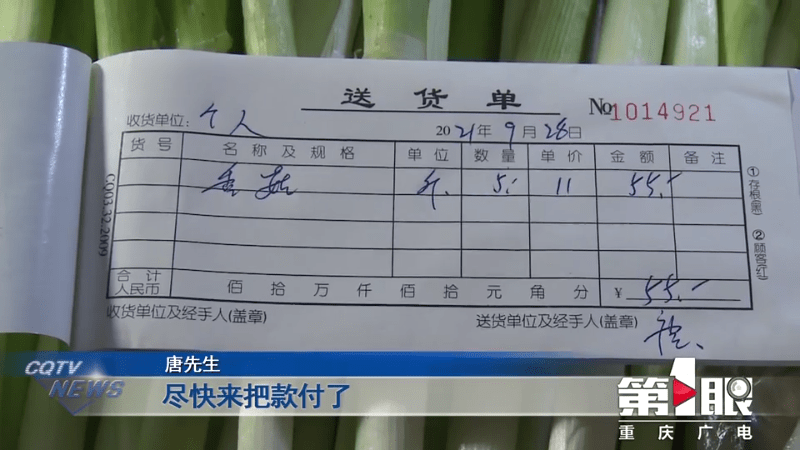 送货单
No 1014921
收货单位: 个人
2021年9月28日
货号 名称及规格 单位 数量 单价 金额 备注
斤 5.- 11 55.-
合计人民币 佰 拾 万 仟 佰 拾 元 角 分 ¥ 55.-
收货单位及经手人(盖章) 送货单位及经手人(盖章)
CQ03.32.2009
①存根(黑)
②顾客(红)
唐先生
CQTV NEWS
尽快来把款付了
第1眼
重庆广电